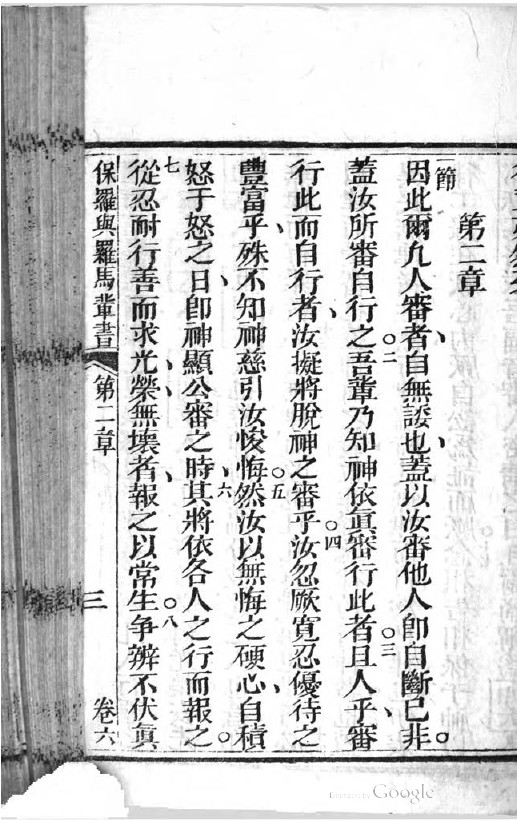 第二章
一節
因此爾凡人審者、自無諉也、蓋以汝審他人卽自斷已非。
蓋汝所審自行之。二吾輩乃知神依眞審行此者。三且人乎、審
行此而自行者、汝擬將脫神之審乎。四汝忽厥寬忍優待之
豐富乎、殊不知神慈引汝悛悔。五然汝以無悔之硬心、自積
怒于怒之日、卽神顯公審之時、六其將依各人之行而報之。
七從忍耐行善而求光、榮、無壞者、報之以常生。八爭辨不伏眞
保羅與羅馬輩書 第二章 三 卷六
Digitized by Google